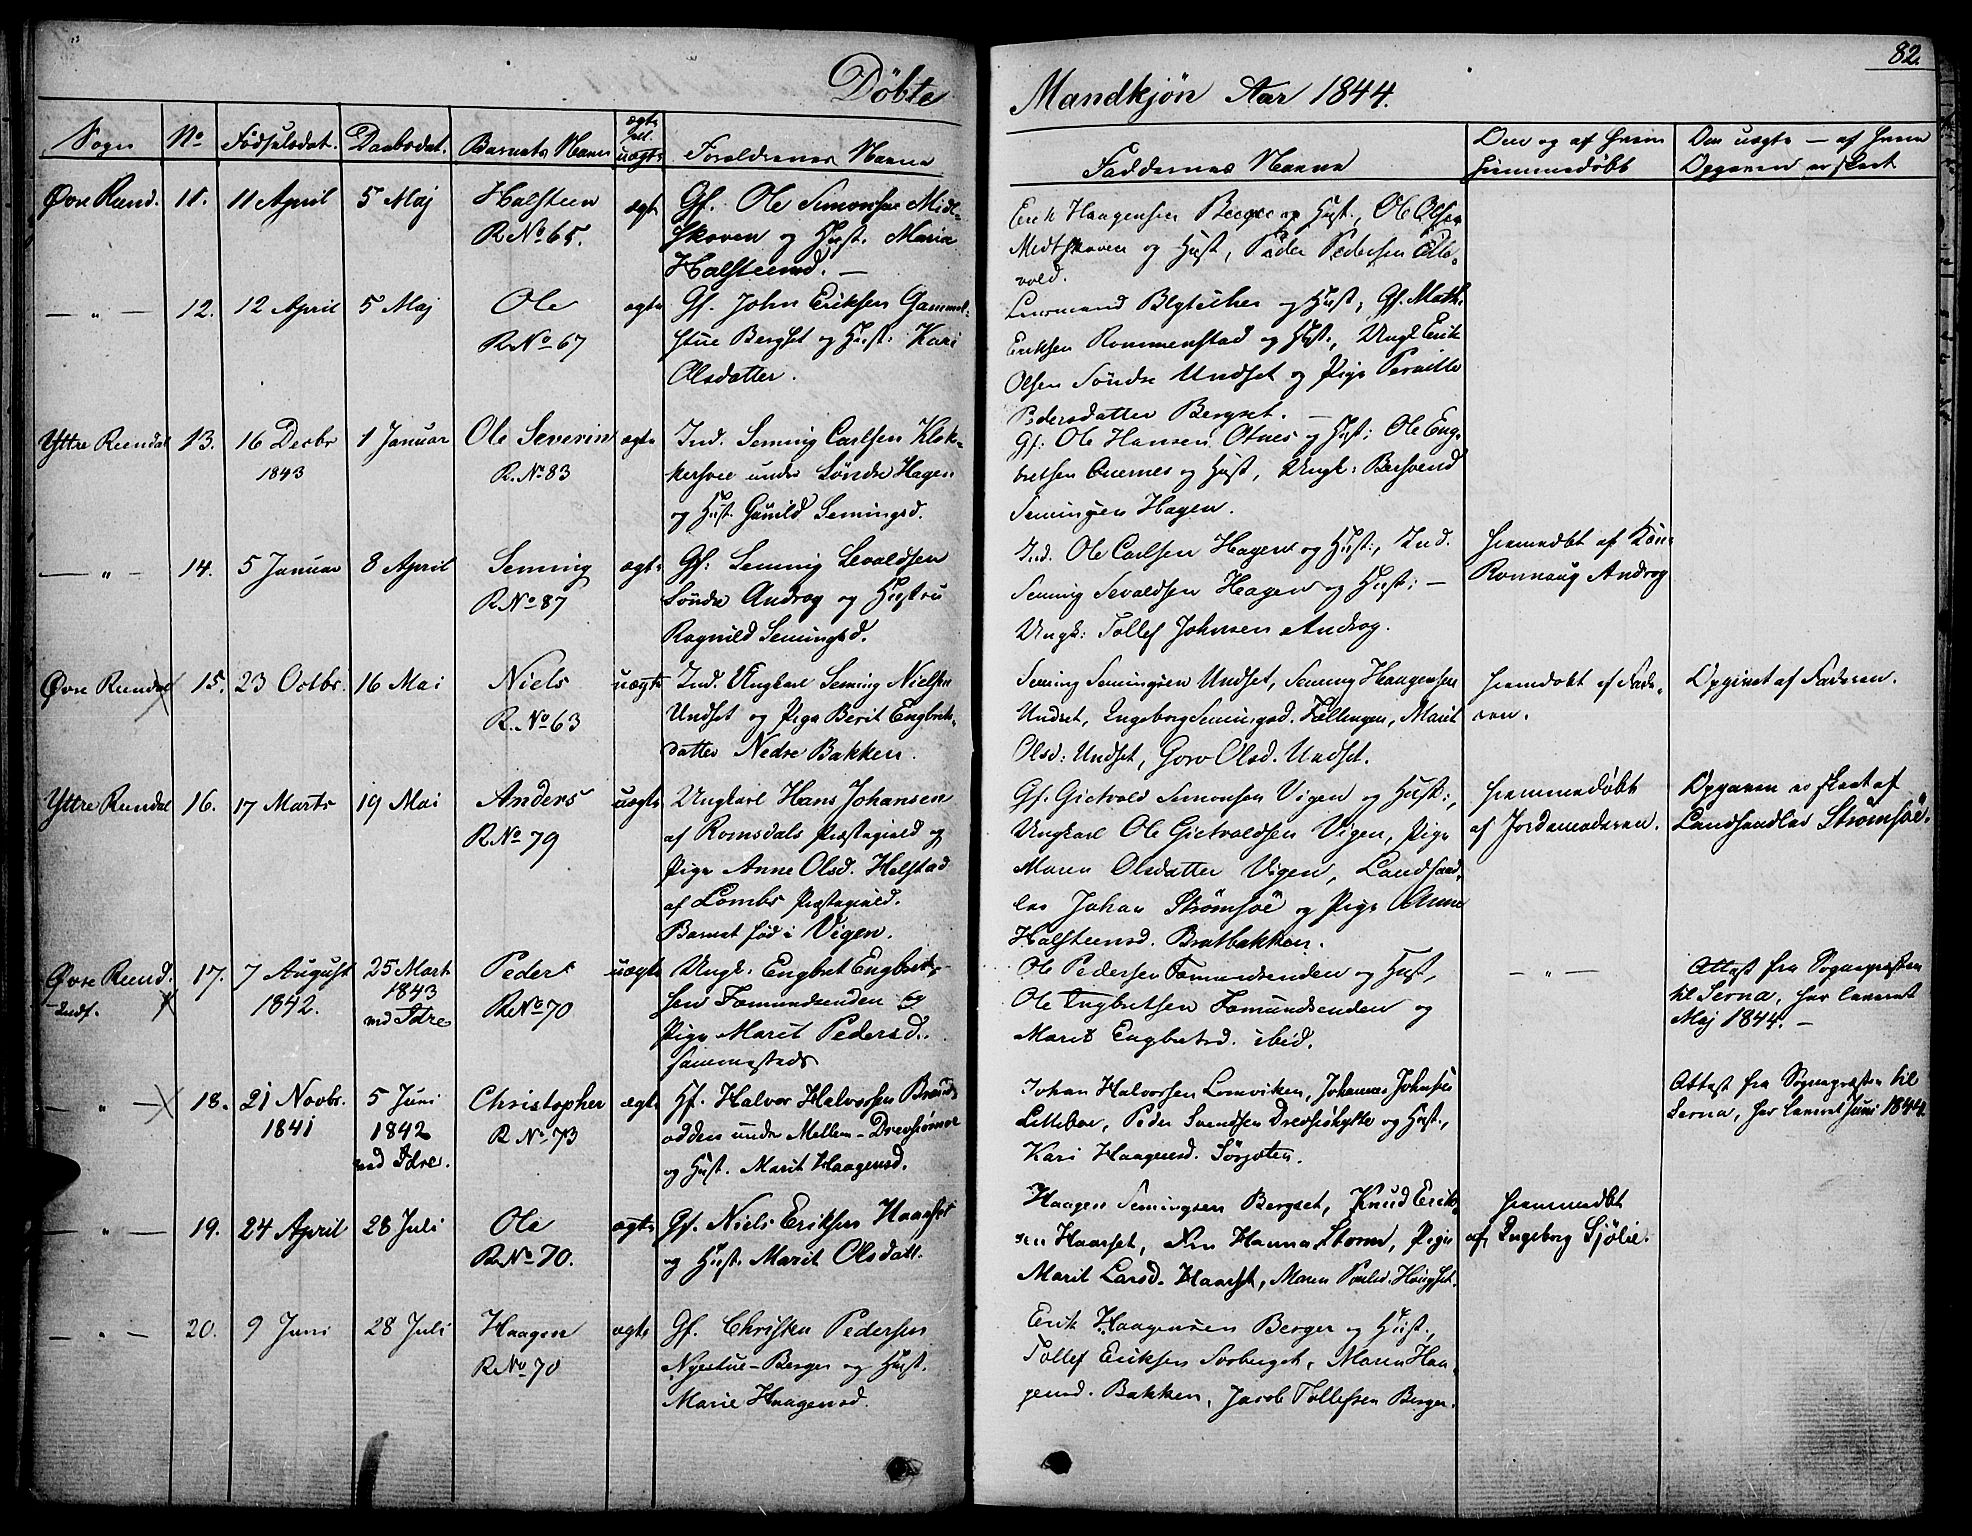 82.
Døbte
Mandkjøn Aar 1844.
Sogn No Fødselsdat. Daabsdat. Barnets Navn ægte ell. uægte Forældrenes Navne
Faddernes Navne
Om og af hvem hjemmedøbt
Om uægte — af hvem Opgaven er skeet
Øvre Rend. 11. 11 April 5 Maj Halsteen ægt Gf. Ole Simonsen Midt-
R No 65. skoven og Hust. Maria
Halsteensd. —
Erik Haagensen Berger og Hust., Ole Olsen
Medtskoven og Hust, Peder Pedersen
vold.
— " — 12. 12 April 5 Maj Ole ægte Gf. John Eriksen Gammel-
R No 67 stue Bergset og Hust: Kari
Olsdatter.
og Hust; Gf. Math.
Eriksen Rommenstad og Hust., Ungk Erik
Olsen Søndre Undset og Pige Pernille
Pedersdatter Bergset. —
Yttre Rendal 13. 16 Decbr 1 Januar Ole Severin ægte Ind. Seming Carlsen Klok-
1843 R. No 83 under Søndre Hagen
og Hust. Gunild Semingsd.
Gf: Ole Hansen Otnes og Hust: Ole Eng-
bretsen og Hust, Ungk: Bersvend
Semingsen Hagen.
— " — 14. 5 Januar 8 April Seming ægte Gf: Seming Sevaldsen
R No 87 Søndre Androg og Hustru
Ragnild Semingsd.
Ind. Ole Carlsen Hagen og Hust:, Ind.
Seming Sevaldsen Hagen og Hust: —
Ungk: Tollef Johnsen Androg.
hjemmedøbt af Kone
Ronnaug Androg
Øvre Rendal 15. 23 Octbr. 16 Mai Niels uægte Ind. Ungkarl Seming Nielsen
R. No 63 Undset og Pige Berit Engbrets-
datter Nedre Bakken.
Seming Semingsen Undset, Seming Haagensen
Undset, Ingeborg Semingsd. Fællingen, Marit
Olsd: Undset, Goro Olsd. Undset.
hjemdøbt af Fade-
ren.
Opgivet af Faderen.
Yttre Rendal 16. 17 Marts 19 Mai Anders uægte Ungkarl Hans Johansen
R No 79 af Romsdals Præstegield og
Pige Anne Olsd. Helstad
af Lombs Præstegield.
Barnet fød i Vigen.
Gf. Gietvold Simonsen Vigen og Hust:,
Ungkarl Ole Gietvoldsen Vigen, Pige
Maren Olsdatter Vigen, Landhand-
ler Johan Strømsøe og Pige
Halsteensd. Bratbakken.
hjemmedøbt
af Jordemoderen.
Opgaven er skeet af
Landhandler Strømsøe.
Øvre Rend. 17. 7 August 25 Mart. Peder uægte Ungk: Engbret Engbret-
Inds. 1842. 1843 R No 70 sen Fæmundsenden og
ved Idre Pige Marit Pedersd.
sammesteds
Ole Pedersen Fæmundsenden og Hust,
Ole Engbretsen Fæmundsenden og
Marit Engbretsd. ibid.
— " —
Attest fra Sognepræsten
til Serna, har leveret
Maj 1844. —
— " — 18. 21 Novbr. 5 Juni Christopher ægte Hf. Halvor Halvorsen
1841 1842 R No 73 odden under Mellem-Drevsjømoe
ved Idre. og Hust. Marit Haagensd.
Johan Halvorsen Lomviken, Johannes Johnsen
Litteboe, Peder Svendsen og Hust.,
Kari Haagensd. Sørjoten.
Attest fra Sognepræsten til
Serna, har leveret Juni 1844.
— " — 19. 24 April 28 Juli Ole ægte Gf. Niels Eriksen Haarset
R No 70. og Hust. Marit Olsdatt.
Haagen Semingsen Bergset, Knud Erik-
sen Haarset, Hanna Storm, Pige
Marit Larsd. Haarset, Maren Haugset.
hjemmedøbt
af Ingeborg Sjølie.
— " — 20. 9 Juni 28 Juli Haagen ægte Gf. Christen Pedersen
R No 70 Nyestue-Berger og Hust.
Marie Haagensd.
Erik Haagensen Berger og Hust,
Tollef Eriksen Sorberget, Maren Haa-
gensd. Bakken, Jacob Tollefsen Berger.